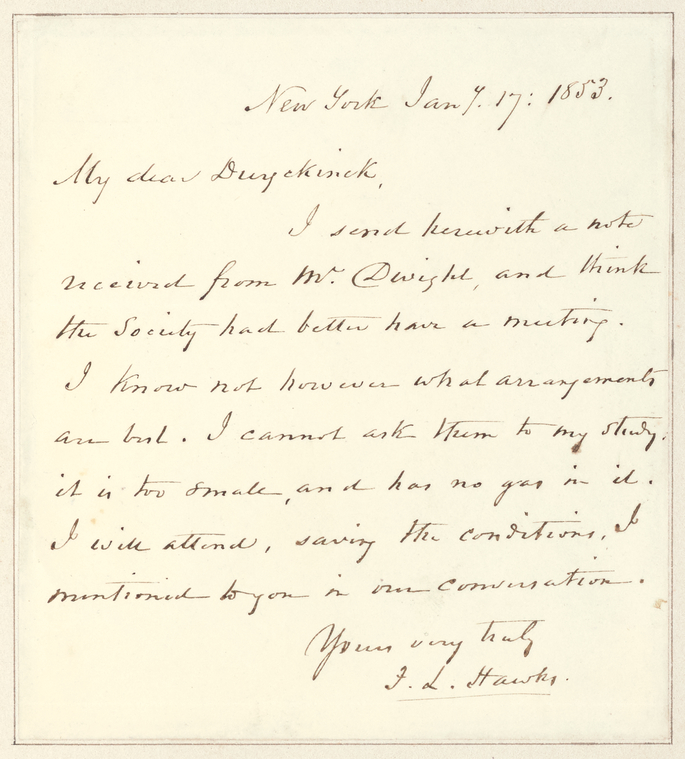 New York Jany. 17: 1853.
My dear Duyckinck,
I send herewith a note
received from Mr. Dwight, and think
the Society had better have a meeting.
I know not however what arrangements
are best. I cannot ask them to my study,
it is too small, and has no gas in it.
I will attend, saving the conditions, I
mentioned to you in our conversation.
Yours very truly
F. L. Hawks.